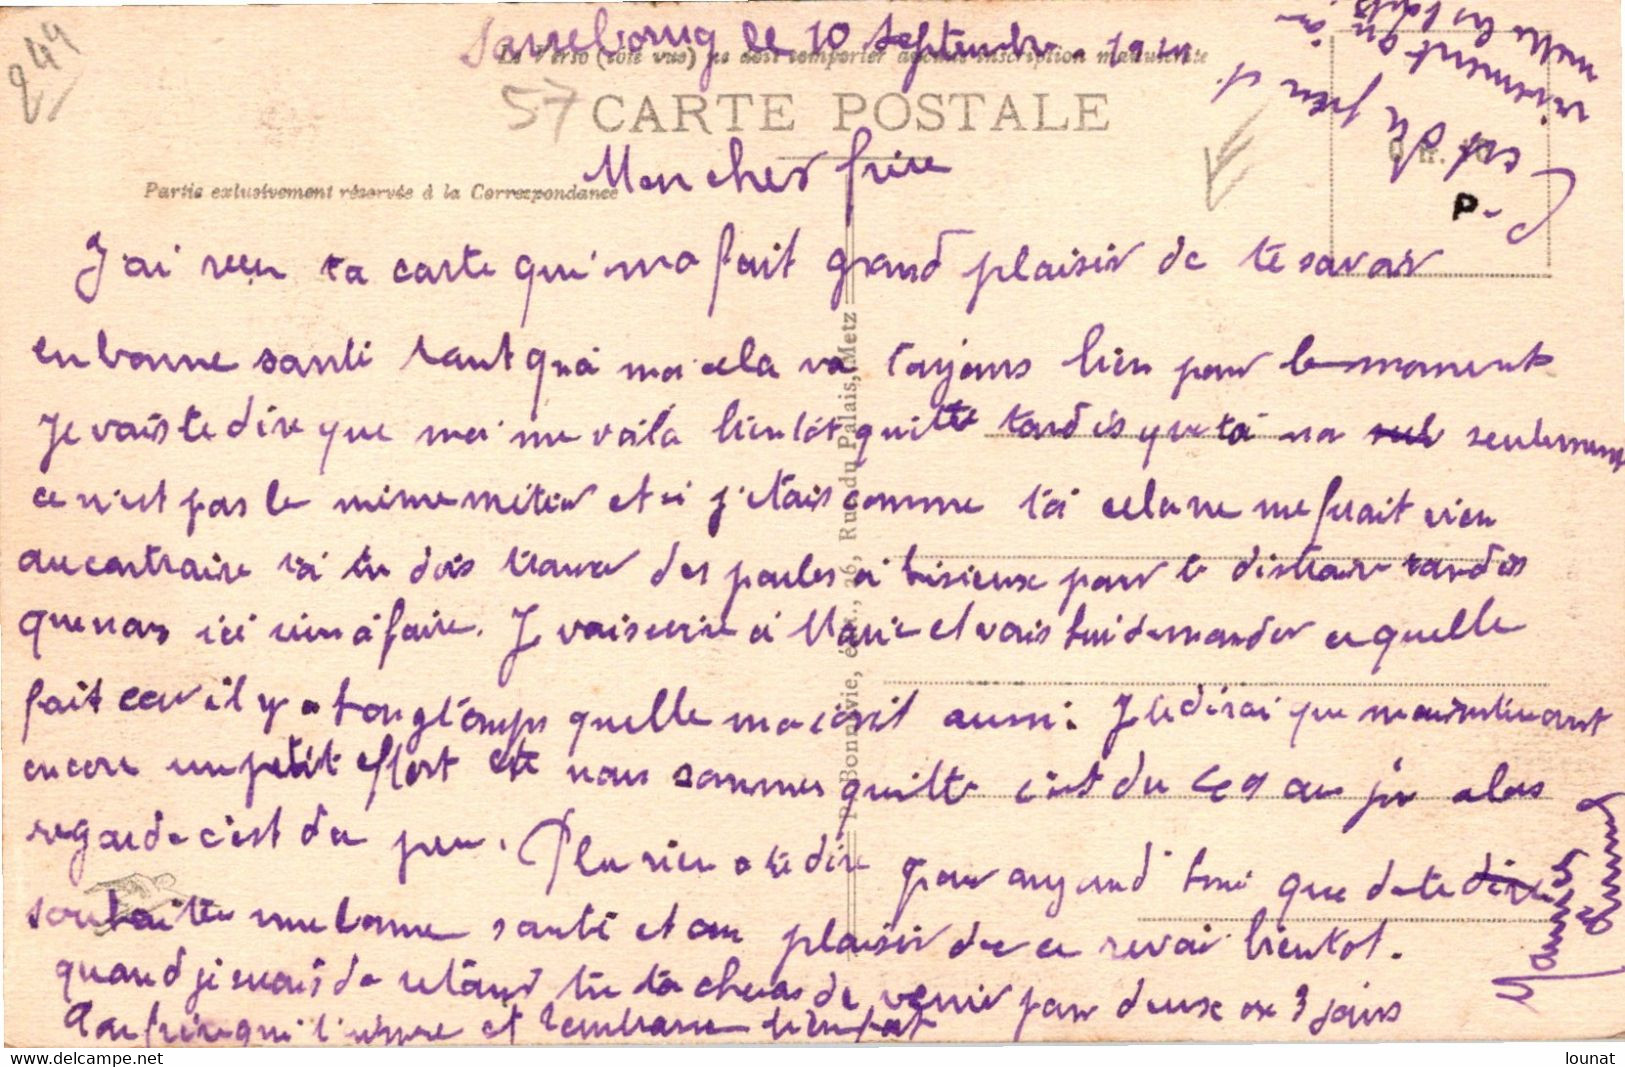 244
Sarrebourg le 10 Septembre
Le Verso (côté vue) ne doit comporter aucune inscription manuscrite
57
CARTE POSTALE
Mon cher frère
Partie exclusivement réservée à la Correspondance
0 fr. 10
P-
J'ai recu ta carte qui ma fait grand plaisir de te savoir
en bonne santé tant qua moi cela va toujours bien pour le moment
Je vais te dire que moi me voila bientôt quitte tandis que toi non seulement
ce n'est pas le même métier et si j'étais comme toi cela ne me ferait rien
au contraire toi tu dois trouver des poules a Lisieux pour te distraire tandis
que nous ici rien a faire. Je vais ecrire a Marie et vais lui demander ce quelle
fait car il y a longtemps quelle ma écrit aussi. Je te dirai que maintenant
encore un petit effort et nous sommes quitte c'est du 49 au jus alors
regarde c'est du peu. Plu rien a te dire pour aujourd'hui que de te dire
souhaiter une bonne santé et au plaisir de ce revoir bientot.
quand je serais de retour tu tacheras de venir pour deux ou 3 jours
Ton frère qui t'aime et t'embrasse bien fort
P. Bonnevie, édit., 26, Rue du Palais, Metz
lounat